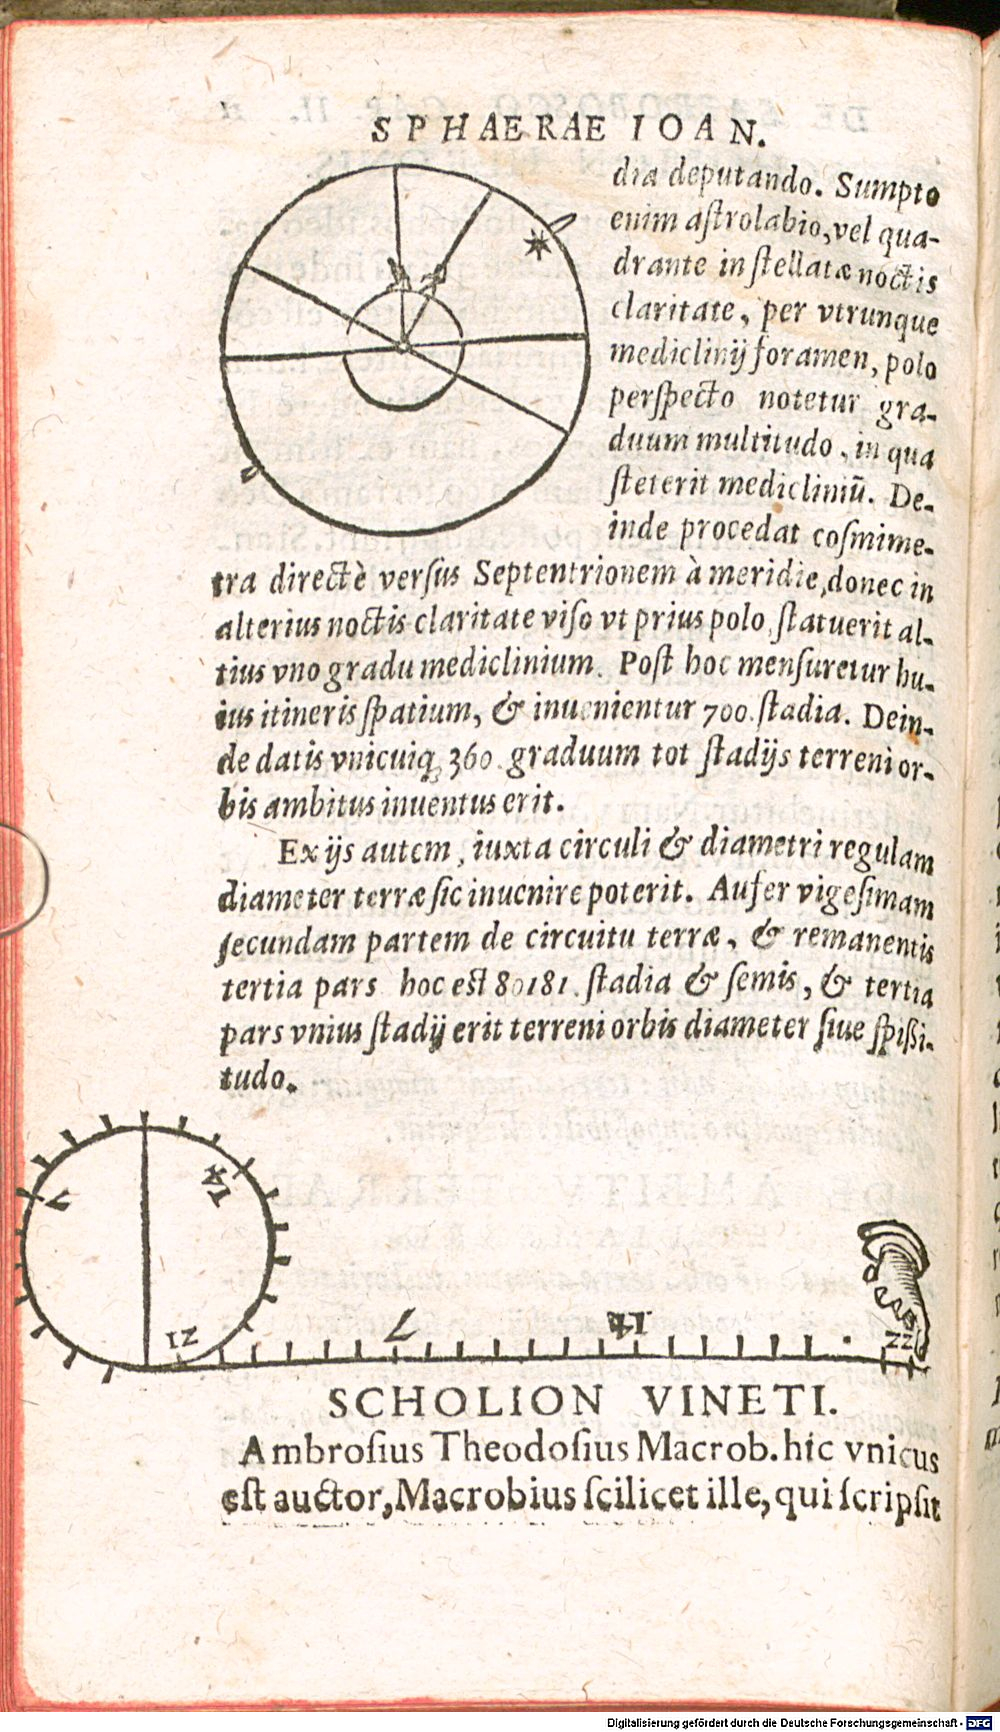 SPHAERAE IOAN.
dia deputando. Sumpto
enim aſtrolabio, vel qua-
drante in ſtellatæ noctis
claritate, per vtrunque
mediclinij foramen, polo
perſpecto notetur gra-
duum multitudo, in qua
ſteterit mediclиniū. De-
inde procedat coſmime-
tra directè verſus Septentrionem à meridie, donec in
alterius noctis claritate viſo vt prius polo, ſtatuerit al-
tius vno gradu mediclinium. Poſt hoc menſuretur hu-
ius itineris ſpatium, & inuenientur 700. ſtadia. Dein-
de datis vnicuiq; 360. graduum tot ſtadijs terreni or-
bis ambitus inuentus erit.
Ex ijs autem, iuxta circuli & diametri regulam
diameter terræ ſic inuenire poterit. Aufer vigeſimam
ſecundam partem de circuitu terræ, & remanentis
tertia pars hoc eſt 80181. ſtadia & ſemis, & tertia
pars vnius ſtadij erit terreni orbis diameter ſiue ſpißi-
tudo.
7
14
21
7
14
22
SCHOLION VINETI.
Ambroſius Theodoſius Macrob. hic vnicus
eſt auctor, Macrobius ſcilicet ille, qui ſcripſit
Digitalisierung gefördert durch die Deutsche Forschungsgemeinschaft - DFG